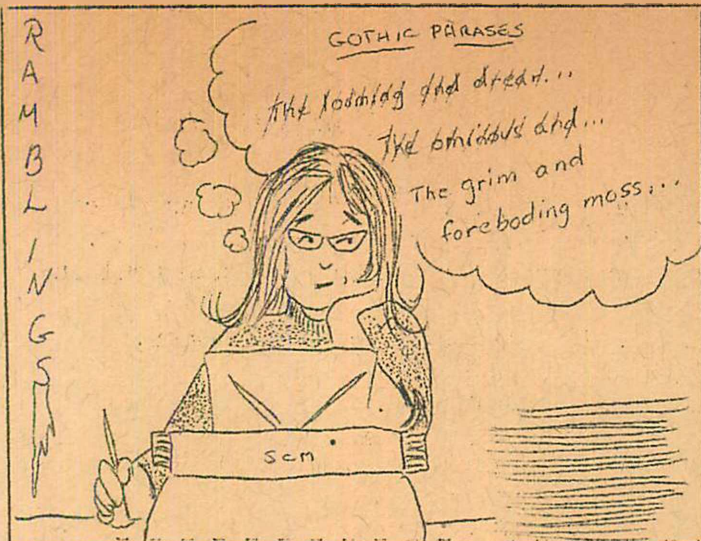 RAMBLINGS
GOTHIC PHRASES
The looming and drear...
The ominous and...
The grim and
foreboding moss...
SCM